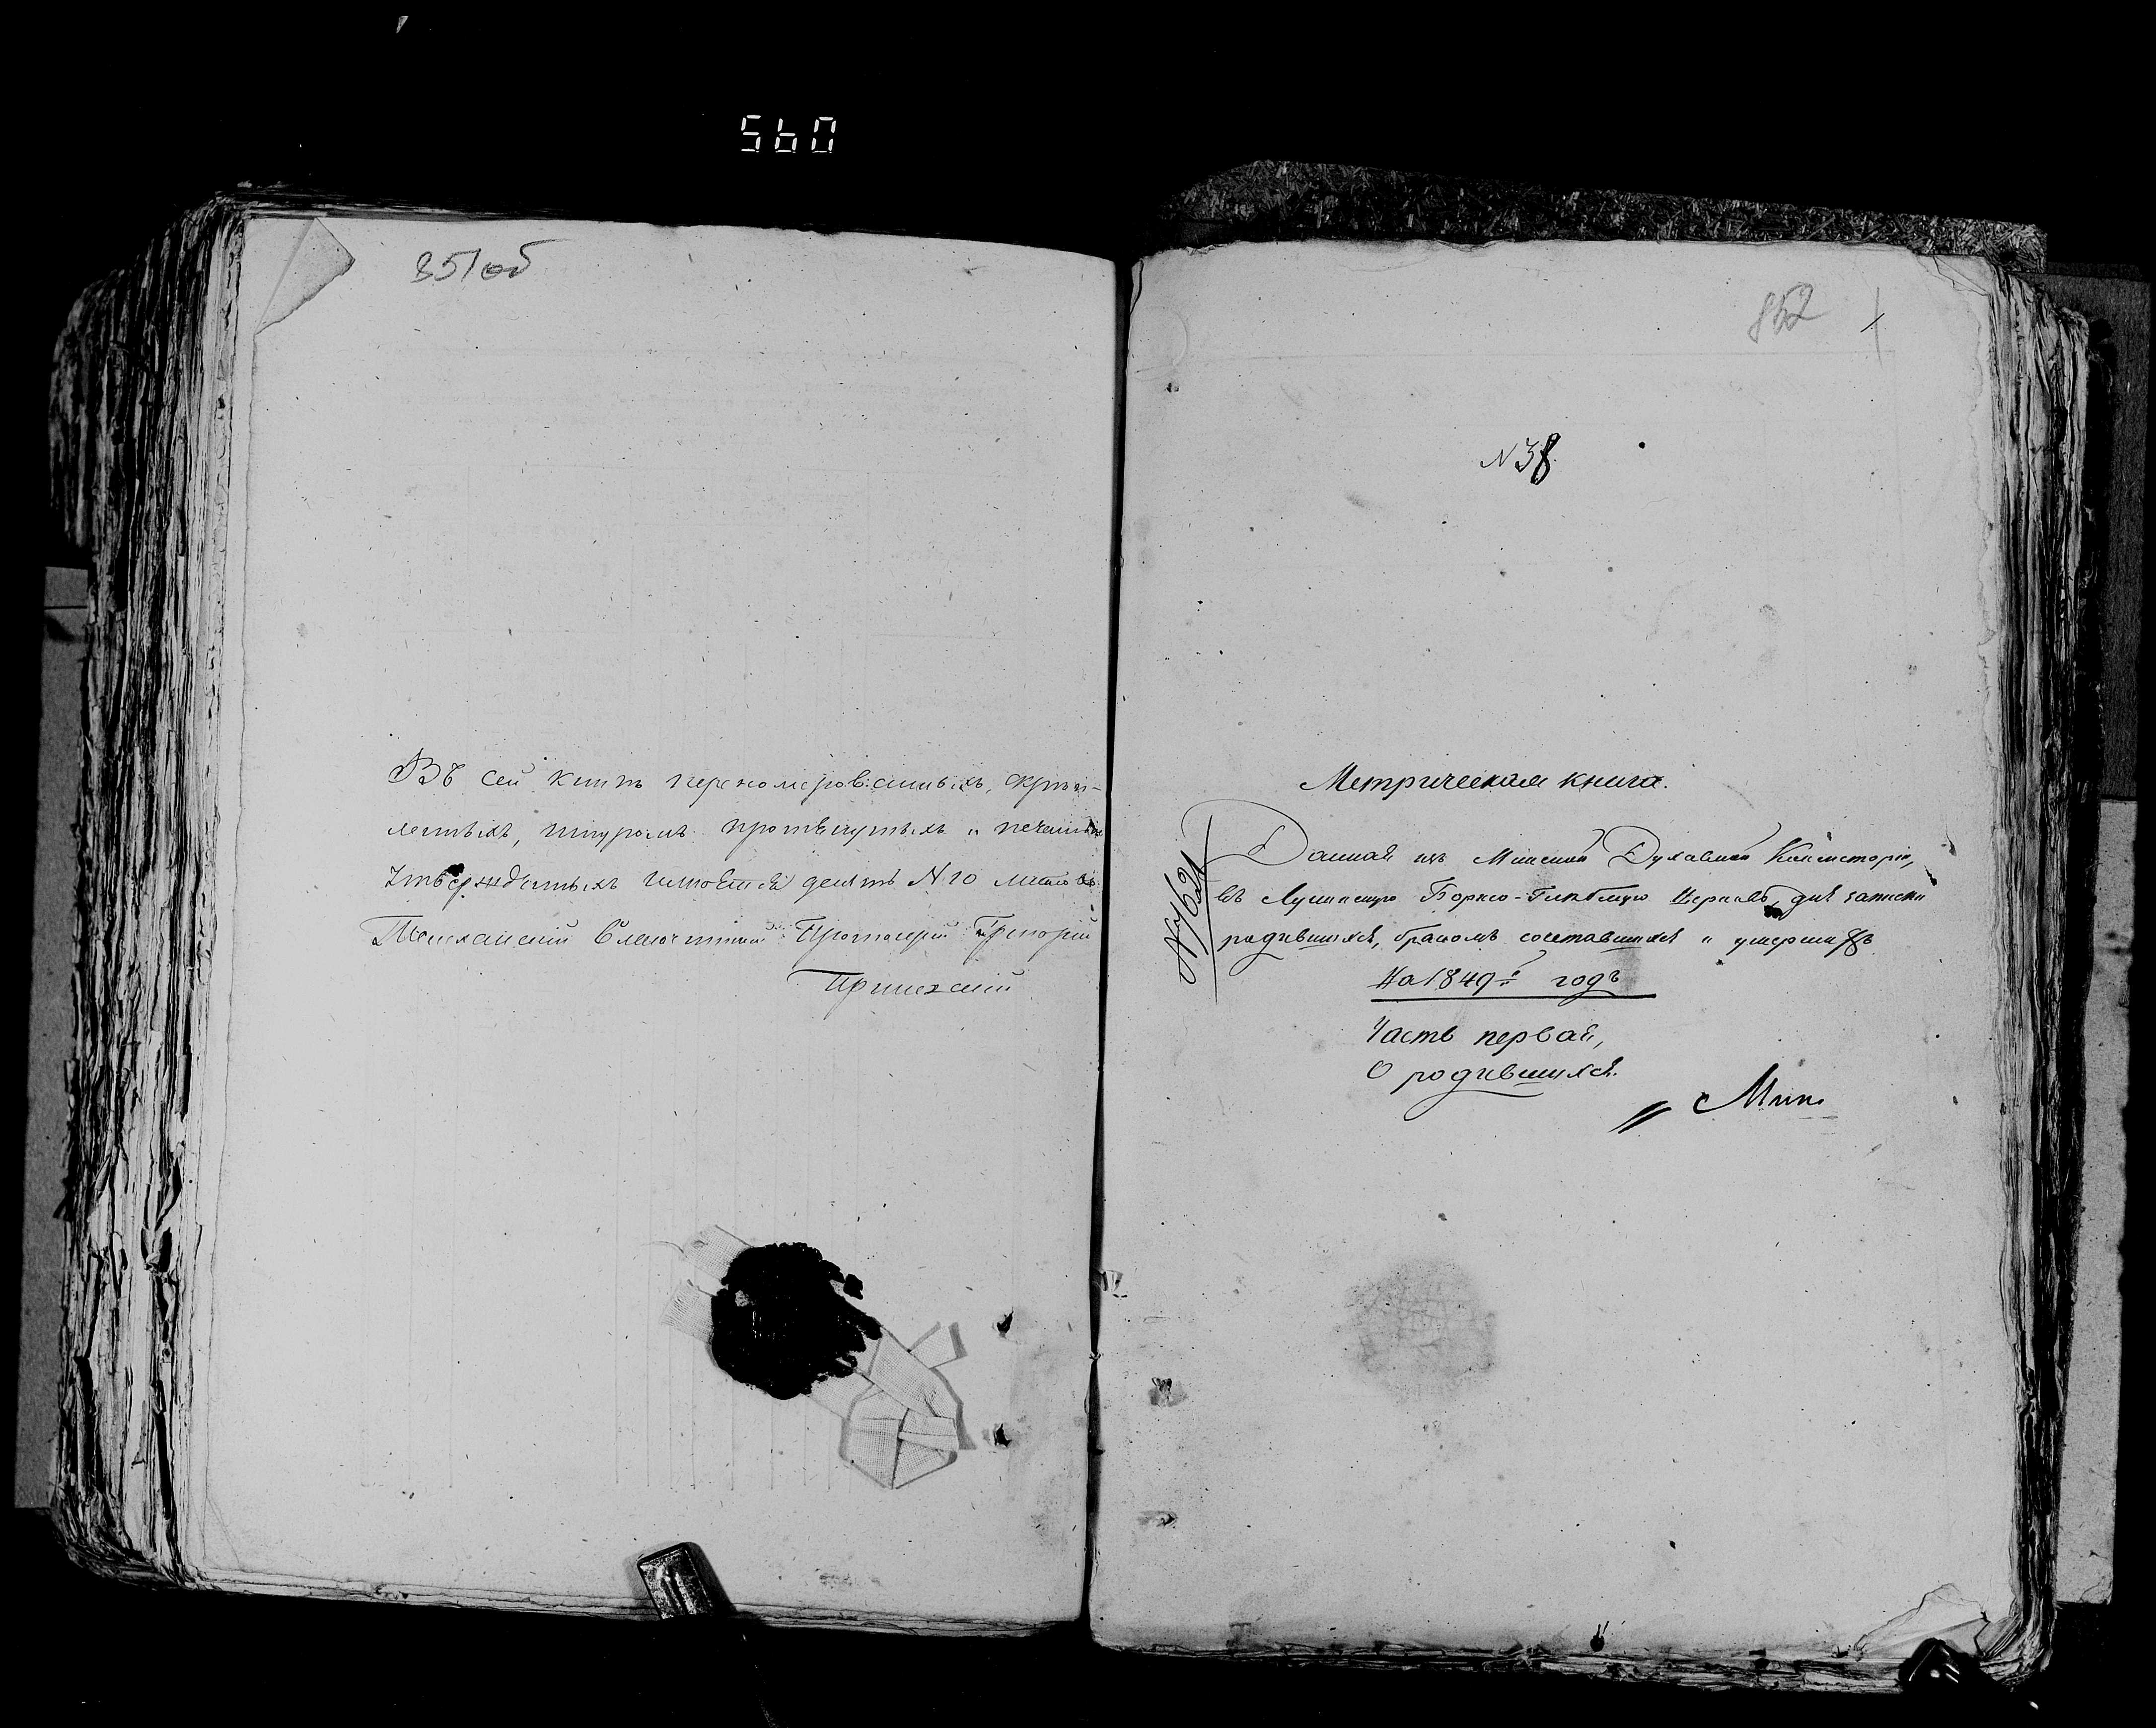 560
851об
Въ сей книгѣ переномерованныхъ, скрѣп-
ленныхъ, шнуромъ протянутыхъ и печатью
утвержденныхъ имѣется десять N 10 листовъ
Благочинный Протоіерей Григорій
852
N 38
Метрическая книга.
Данная изъ Минской Духовной Консисторіи,
въ Борисо-Глѣбскую Церковь, для записки
родившихся, бракомъ сочетавшихся и умершихъ
На 1849й годъ
Часть первая,
О родившихся.
N 7621